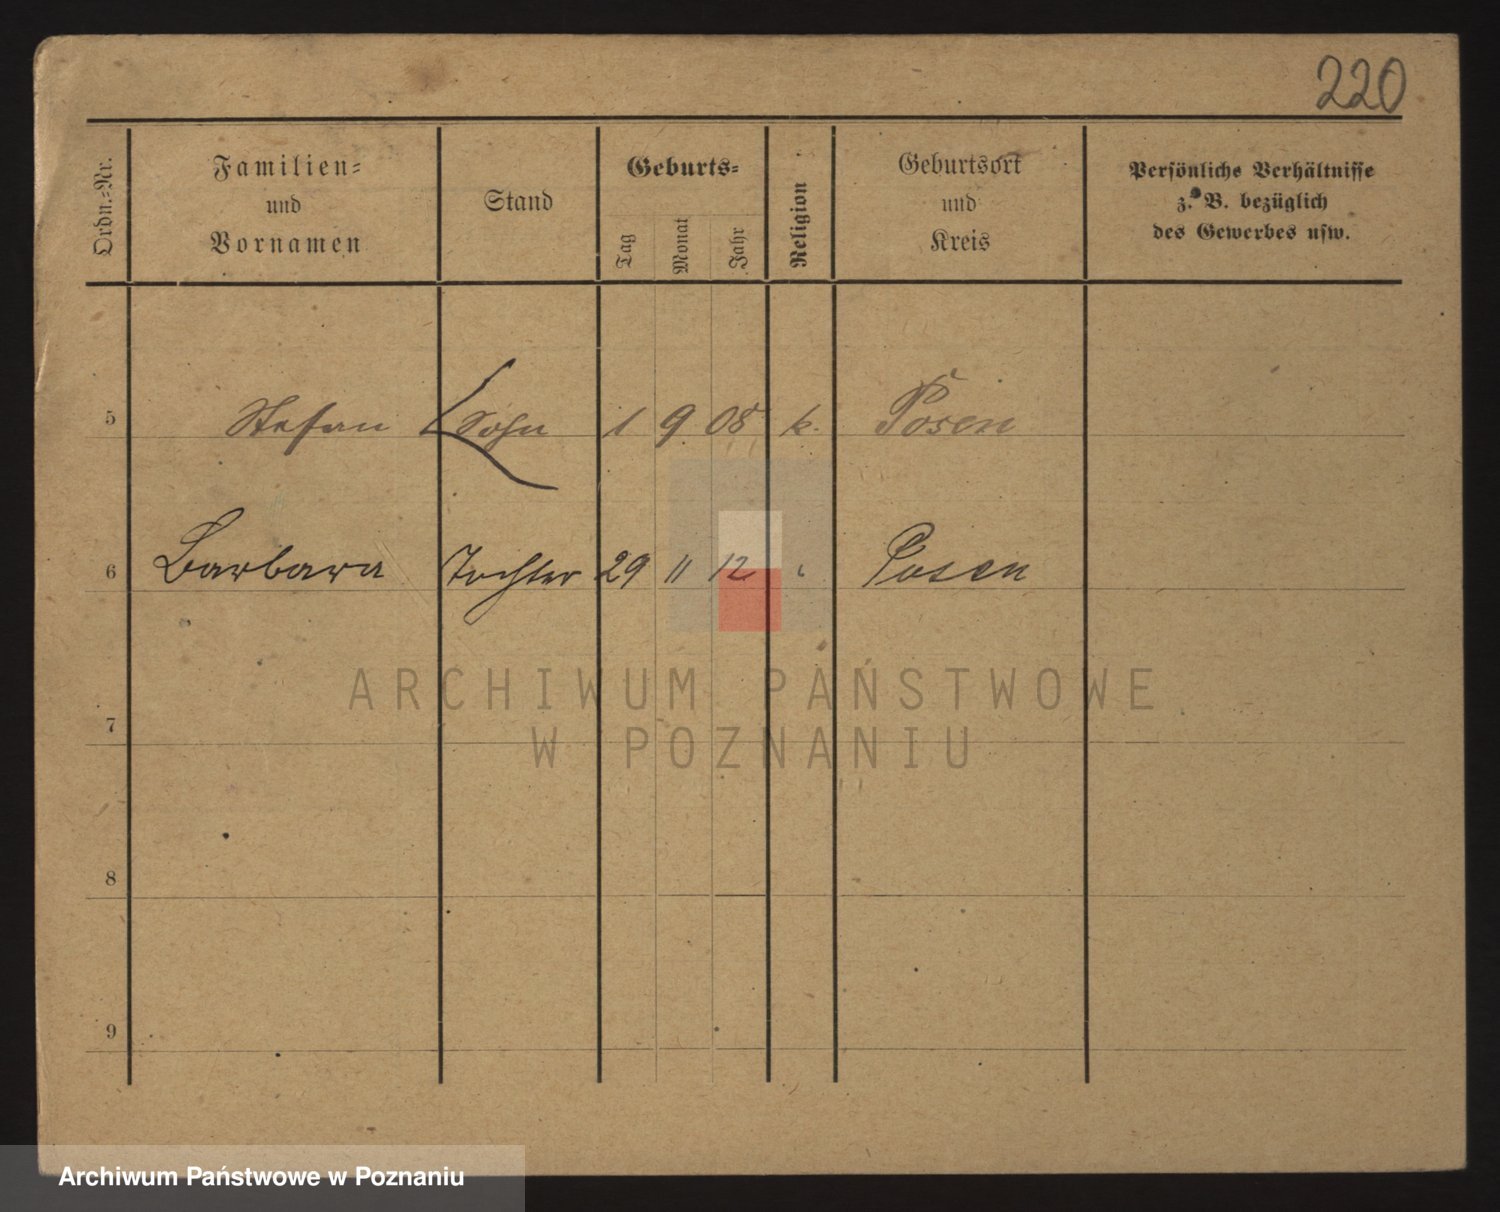 220
Ordn.-Nr.
Familien-
und
Vornamen
Stand
Geburts-
Tag
Monat
Jahr
Religion
Geburtsort
und
Kreis
Persönliche Verhältnisse
z. B. bezüglich
des Gewerbes usw.
5 Stefan Sohn 1 9 08 k. Posen
6 Barbara Tochter 29 11 12 Posen
7
8
9
ARCHIWUM PAŃSTWOWE
W POZNANIU
Archiwum Państwowe w Poznaniu